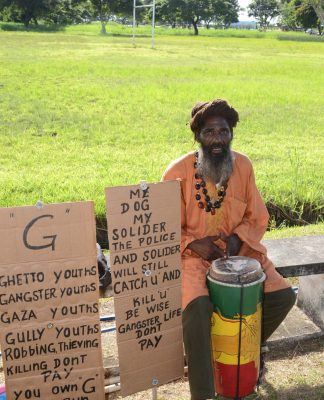 "G"
GHETTO YOUTHS
GANGSTER YOUTHS
GAZA YOUTHS
GULLY YOUTHS
ROBBING, THIEVING
KILLING DONT
PAY.
YOU OWN G
ME
DOG
MY
SOLIDER
THE POLICE
AND SOLIDER
WILL STILL
CATCH U AND
KILL U
BE WISE
GANGSTER LIFE
DONT
PAY